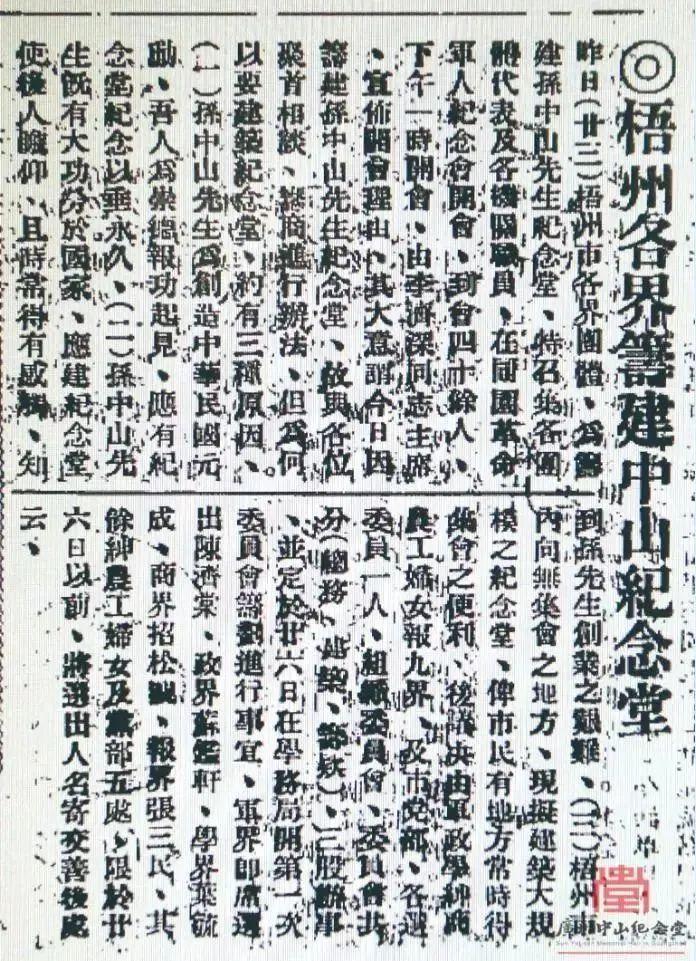 ◎梧州各界籌建中山紀念堂
昨日(廿三)梧州市各界團體、爲籌
建孫中山先生紀念堂、特召集各團
體代表及各機關職員、在同園革命
軍人紀念會開會、到會四十餘人、
下午一時開會、由李濟深同志主席
、宣佈開會理由、其大意謂今日因
籌建孫中山先生紀念堂、故與各位
聚首相談、磋商進行辦法、但爲何
以要建築紀念堂、約有三種原因、
(一)孫中山先生爲創造中華民國元
勛、吾人爲崇德報功起見、應有紀
念堂紀念以垂永久、(二)孫中山先
生既有大功勞於國家、應建紀念堂
使後人瞻仰、且時常得有感觸、知
到孫先生創業之艱難、(三)梧州市
內向無集會之地方、現擬建築大規
模之紀念堂、俾市民有地方常時得
集會之便利、後議决由軍政學紳商
農工婦女報九界、及市党部、各選
委員一人、組織委員會、委員會共
分(總務、建築、籌欵)、三股辦事
、並定於廿六日在學務局開第一次
委員會籌劃進行事宜、軍界即席選
出陳濟棠、政界蘇鑑軒、學界葉
成、商界招松、報界張三民、其
餘紳農工婦女及黨部五處、限於廿
六日以前、將選出人名寄交善後處
云、
中山紀念堂
Sun Yat-sen Memorial Hall in Guangzhou